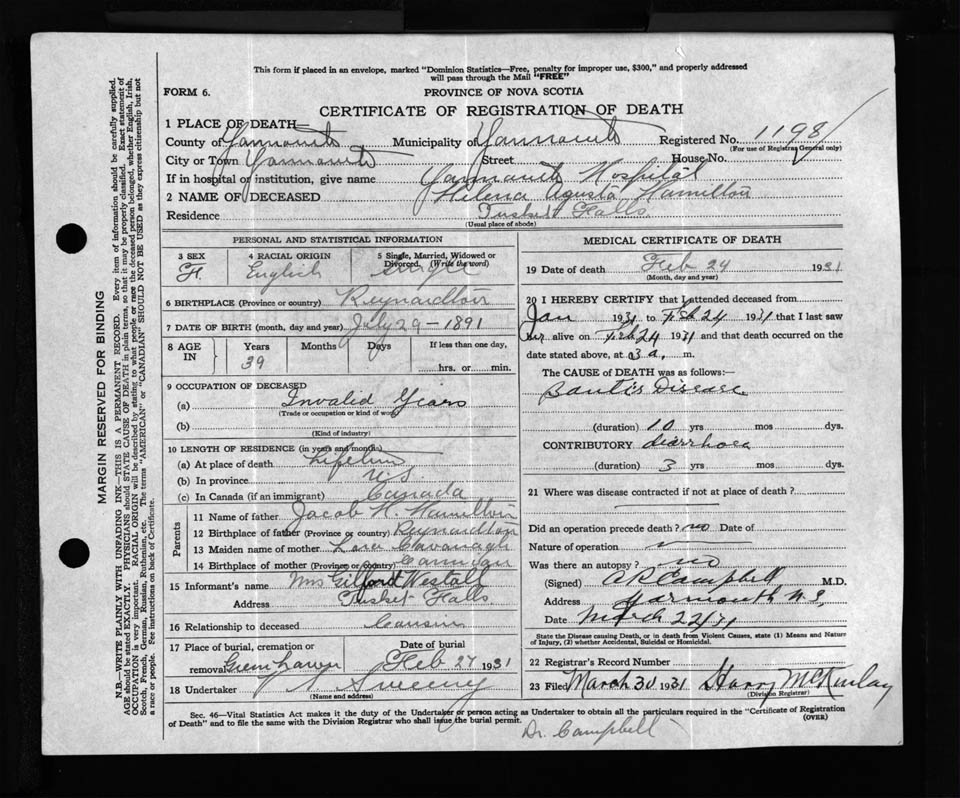 This form if placed in an envelope, marked "Dominion Statistics—Free, penalty for improper use, $300," and properly addressed
will pass through the Mail "FREE"
FORM 6.
PROVINCE OF NOVA SCOTIA
CERTIFICATE OF REGISTRATION OF DEATH
1 PLACE OF DEATH—
County of Yarmouth Municipality of Yarmouth Registered No. 1198
(For use of Registrar General only)
City or Town Yarmouth Street House No.
If in hospital or institution, give name Yarmouth Hospital
2 NAME OF DECEASED Helena Agusta Hamilton
Residence Tusket Falls
(Usual place of abode)
PERSONAL AND STATISTICAL INFORMATION
3 SEX
4 RACIAL ORIGIN English
5 Single, Married, Widowed or
Divorced. (Write the word)
Single
6 BIRTHPLACE (Province or country) Reynardton
7 DATE OF BIRTH (month, day and year) July 29 – 1891
8 AGE IN Years 39 Months Days If less than one day,
hrs. or min.
9 OCCUPATION OF DECEASED
(a) Invalid Years
(Trade or occupation or kind of work)
(b)
(Kind of industry)
10 LENGTH OF RESIDENCE (in years and months)
(a) At place of death Lifetime
(b) In province N.S.
(c) In Canada (if an immigrant) Canada
Parents
11 Name of father Jacob H. Hamilton
12 Birthplace of father (Province or country) Reynardton
13 Maiden name of mother Cavanagh
14 Birthplace of mother (Province or country)
15 Informant's name Mrs Gilford Westall
Address Tusket Falls
16 Relationship to deceased Cousin
17 Place of burial, cremation or removal Date of burial
Feb 27 1931
18 Undertaker Sweeny
(Name and address)
MEDICAL CERTIFICATE OF DEATH
19 Date of death Feb 24 1931
(Month, day and year)
20 I HEREBY CERTIFY that I attended deceased from
Jan 1931 to Feb 24 1931 that I last saw
her alive on Feb 24 1931 and that death occurred on
date stated above, at 3 a. m.
The CAUSE of DEATH was as follows:—
Banti's Disease
(duration) 10 yrs mos dys.
CONTRIBUTORY diarrhoea
(duration) 3 yrs mos dys.
21 Where was disease contracted if not at place of death?
Did an operation precede death? no Date of
Nature of operation
Was there an autopsy? no
(Signed) A R Campbell M.D.
Address Yarmouth N.S.
Date March 24 31
State the Disease causing Death, or in death from Violent Causes, state (1) Means and Nature
of Injury, (2) whether Accidental, Suicidal or Homicidal.
22 Registrar's Record Number
23 Filed March 30 1931 Harry McKinlay
(Division Registrar)
Sec. 46—Vital Statistics Act makes it the duty of the Undertaker or person acting as Undertaker to obtain all the particulars required in the "Certificate of Registration
of Death" and to file the same with the Division Registrar who shall issue the burial permit. (OVER)
Dr. Campbell
MARGIN RESERVED FOR BINDING
N.B.—WRITE PLAINLY WITH UNFADING INK—THIS IS A PERMANENT RECORD. Every item of information should be carefully supplied.
AGE should be stated EXACTLY. PHYSICIANS should STATE CAUSE OF DEATH in plain terms, so that it may be properly classified. Exact statement of
OCCUPATION is very important. RACIAL ORIGIN will be described by stating to what people or race the deceased person belonged, whether English, Irish,
Scotch, French, German, Russian, Ruthenian, etc. The terms "AMERICAN" or "CANADIAN" SHOULD NOT BE USED as they express citizenship but not
a race or people. See instructions on back of Certificate.